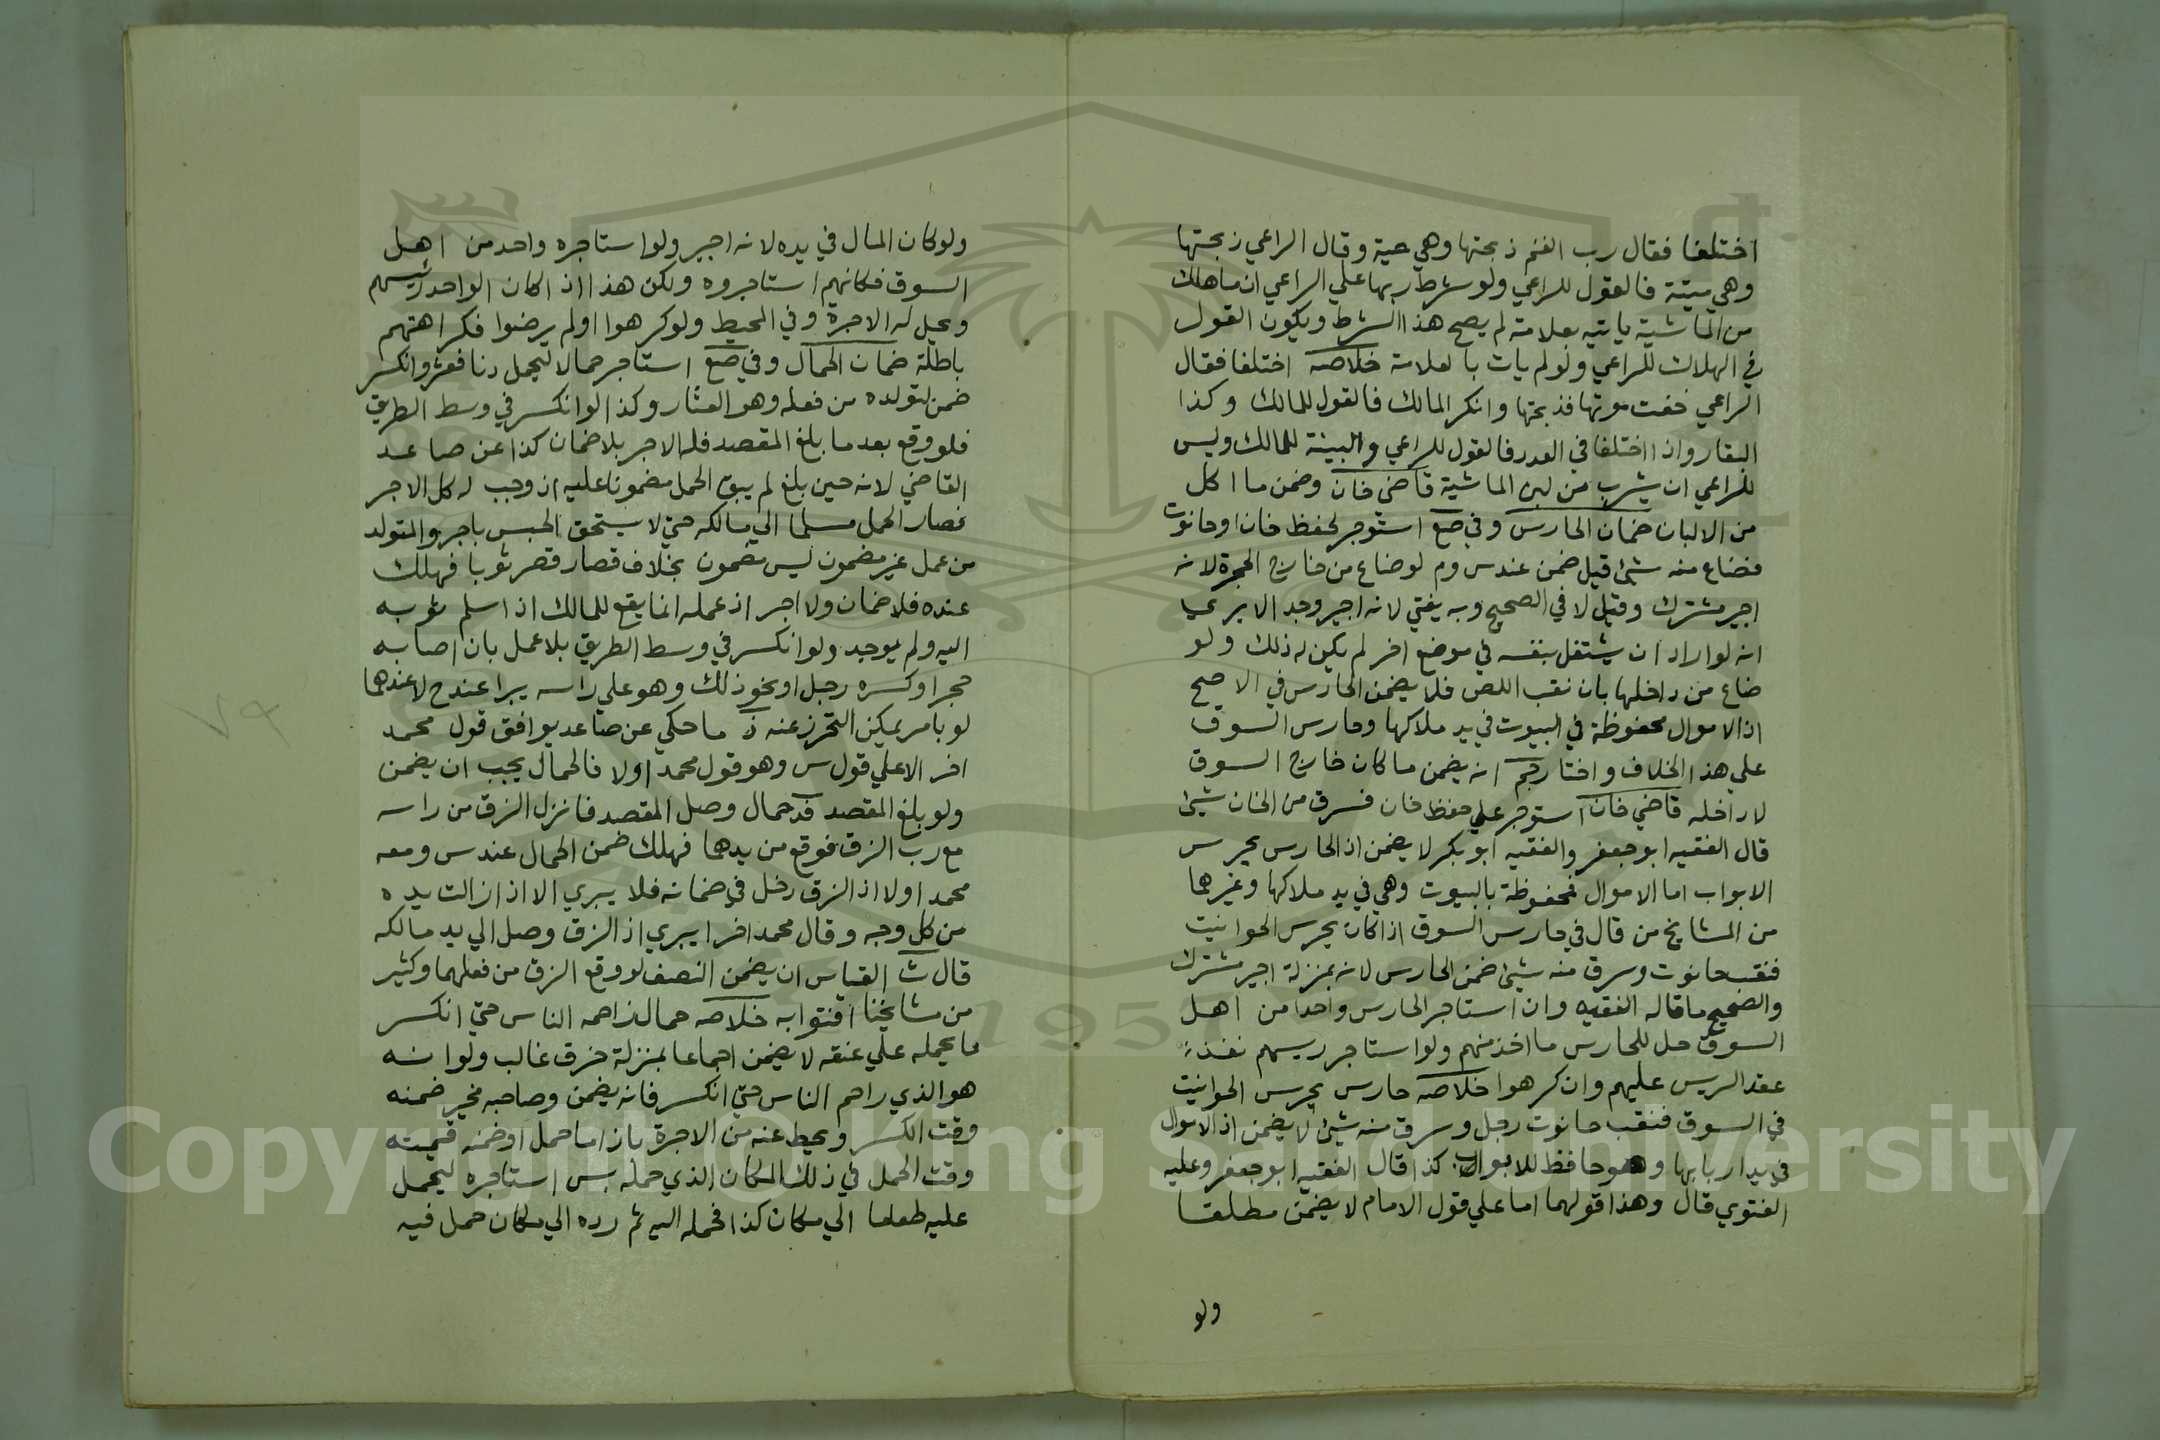 اختلفا فقال رب الغنم ذبحتها وهي حية وقال الراعي ذبحتها
وهي ميتة فالقول للراعي ولو شرط ربها علي الراعي ان ما هلك
من الماشية ياتيه بعلامة لم يصح هذا الشرط ويكون القول
في الهلاك للراعي ولو لم يات بالعلامة خلاصه اختلفا فقال
الراعي خفت موتها فذبحتها وانكر المالك فالقول للمالك وكذا
البقار واذا اختلفا في العدد فالقول للراعي والبينة للمالك وليس
للراعي ان يشرب من لبن الماشية قاضي خان وضمن ما اكل
من الالبان ضمان الحارس وفي صع استوجر لحفظ خان او حانوت
فضاع منه شئ قيل ضمن عند س وم لو ضاع من خارج الحجرة لانه
اجير مشترك وقيل لا في الصحيح وبه يفتي لانه اجير وحد الا يري
انه لو اراد ان يشتغل بنفسه في موضع اخر لم يكن له ذلك ولو
ضاع من داخلها بان نقب اللص فلا يضمن الحارس في الاصح
اذ الاموال محفوظة في البيوت في يد ملاكها وحارس السوق
علي هذا الخلاف واختار جم انه يضمن ما كان خارج السوق
لا داخله قاضي خان استوجر علي حفظ خان فسرق من الخان شئ
قال الفقيه ابو جعفر والفقيه ابو بكر لا يضمن اذ الحارس يحرس
الابواب اما الاموال فمحفوظة بالبيوت وهي في يد ملاكها وغيرها
من المشايخ من قال في حارس السوق اذا كان يحرس الحوانيت
فنقب حانوت وسرق منه شئ ضمن الحارس لانه بمنزلة اجير مشترك
والصحيح ما قاله الفقيه وان استاجر الحارس واحدا من اهل
السوق حل للحارس ما اخذ منهم ولو استاجر ريسهم نفذ
عقد الريس عليهم وان كرهوا خلاصه حارس يحرس الحوانيت
في السوق فنقب حانوت رجل وسرق منه شئ لا يضمن اذ الاموال
في يد اربابها وهو حافظ للابواب كذا قال الفقيه ابو جعفر وعليه
الفتوي قال وهذا قولهما اما علي قول الامام لا يضمن مطلقا
ولو
ولو كان المال في يده لانه اجير ولو استاجره واحد من اهل
السوق فكانهم استاجروه ولكن هذا اذا كان الواحد رئيسهم
ويحل له الاجرة وفي المحيط ولو كرهوا او لم يرضوا فكراهتهم
باطلة ضمان الحمال وفي صع استاجر حمالا ليحمل دنا فعثر وانكسر
ضمن لتولده من فعله وهو العثار وكذا لو انكسر في وسط الطريق
فلو وقع بعد ما بلغ المقصد فله الاجر بلا ضمان كذا عن صاعد
القاضي لانه حين بلغ لم يبق الحمل مضمونا عليه اذ وجب له كل الاجر
فصار الحمل مسلما الي مالكه حتي لا يستحق الحبس باجر والمتولد
من عمل غير مضمون ليس مضمون بخلاف قصار قصر ثوبا فهلك
عنده فلا ضمان ولا اجر اذ عمله انما يقع للمالك اذا سلم ثوبه
اليه ولم يوجد ولو انكسر في وسط الطريق بلا عمل بان اصابه
حجر او كسره رجل او نحو ذلك وهو علي راسه يبرا عند ح لا عندهما
لو بامر يمكن التحرز عنه ما حكي عن صاعد يوافق قول محمد
اخر الا علي قول س وهو قول محمد اولا فالحمال يجب ان يضمن
ولو بلغ المقصد حمال وصل المقصد فانزل الزق من راسه
مع رب الزق فوقع من يدهما فهلك ضمن الحمال عند س ومعه
محمد اولا اذ الزق دخل في ضمانه فلا يبري الا اذا زالت يده
من كل وجه وقال محمد اخرا يبري اذ الزق وصل الي يد مالكه
قال ث القياس ان يضمن النصف لو وقع الزق من فعلهما وكثير
من مشايخنا افتوا به خلاصه حمال زاحمه الناس حتي انكسر
ما يحمله علي عنقه لا يضمن اجماعا بمنزلة حرق غالب ولو انه
هو الذي زاحم الناس حتي انكسر فانه يضمن وصاحبه مخير ضمنه
وقت الكسر ويحط عنه من الاجرة بازاء ما حمل او ضمنه قيمته
وقت الحمل في ذلك المكان الذي حمله بس استاجره ليحمل
عليه طعاما الي مكان كذا فحمله اليه ثم رده الي مكان حمل فيه
٧٩
Copyright © King Saud University
1957